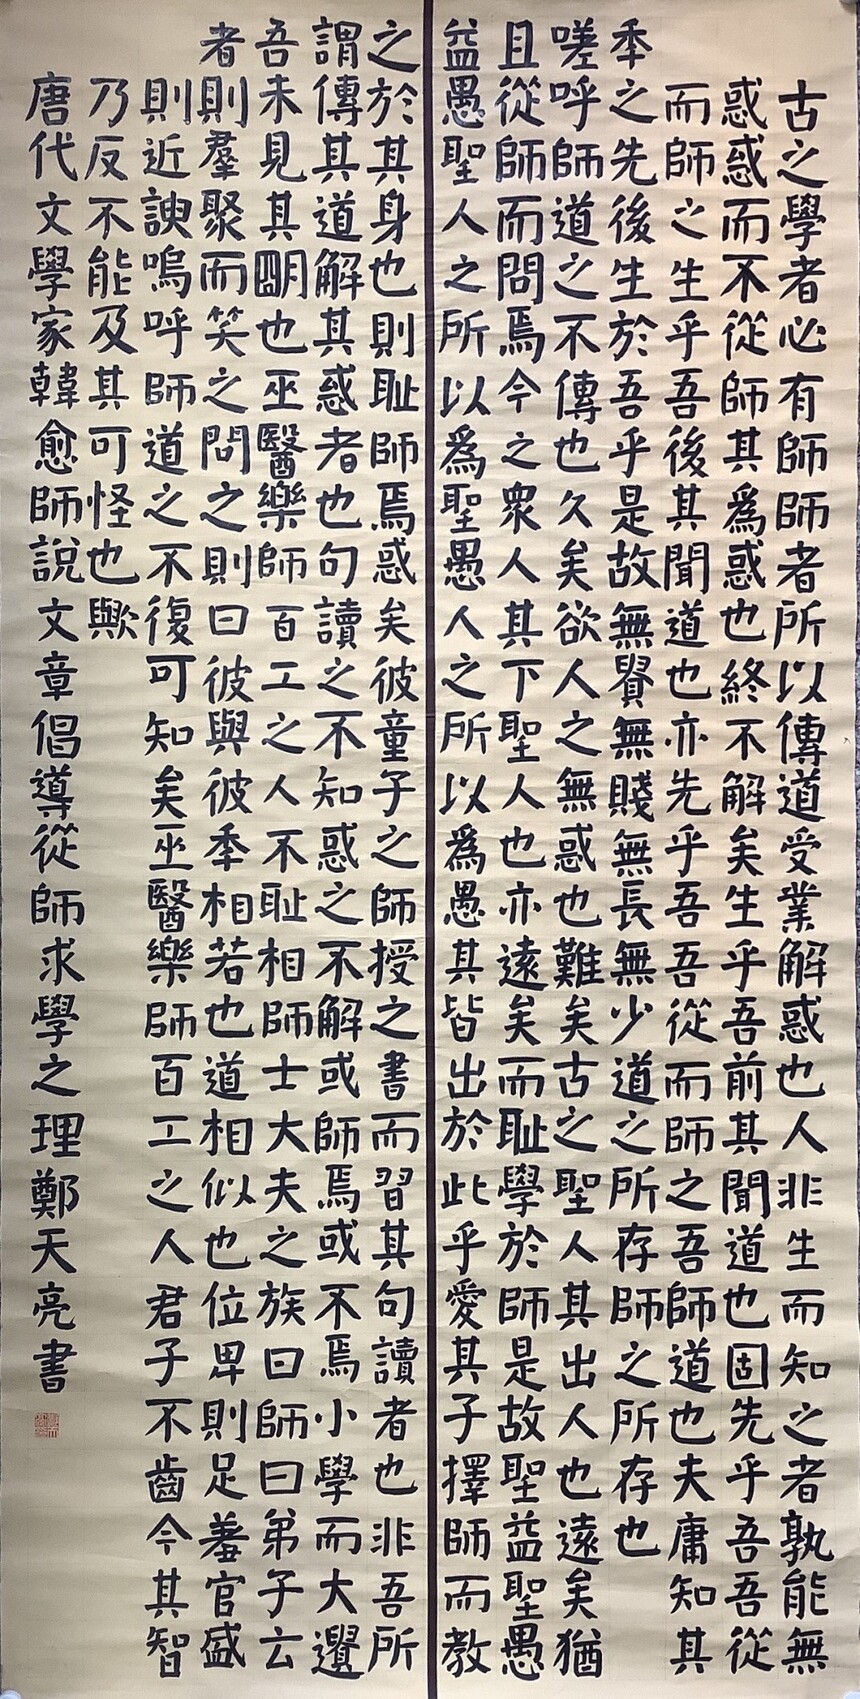 古之學者必有師師者所以傳道受業解惑也人非生而知之者孰能無
惑惑而不從師其爲惑也終不解矣生乎吾前其聞道也固先乎吾吾從
而師之生乎吾後其聞道也亦先乎吾吾從而師之吾師道也夫庸知其
秊之先後生於吾乎是故無貴無賤無長無少道之所存師之所存也
嗟呼師道之不傳也久矣欲人之無惑也難矣古之聖人其出人也遠矣猶
且從師而問焉今之衆人其下聖人也亦遠矣而恥學於師是故聖益聖愚
益愚聖人之所以爲聖愚人之所以爲愚其皆出於此乎愛其子擇師而教
之於其身也則恥師焉惑矣彼童子之師授之書而習其句讀者也非吾所
謂傳其道解其惑者也句讀之不知惑之不解或師焉或不焉小學而大遺
吾未見其朙也巫醫樂師百工之人不恥相師士大夫之族曰師曰弟子云
者則羣聚而笑之問之則曰彼與彼秊相若也道相似也位卑則足羞官盛
則近諛嗚呼師道之不復可知矣巫醫樂師百工之人君子不齒今其智
乃反不能及其可怪也歟
唐代文學家韓愈師說文章倡導從師求學之理鄭天亮書